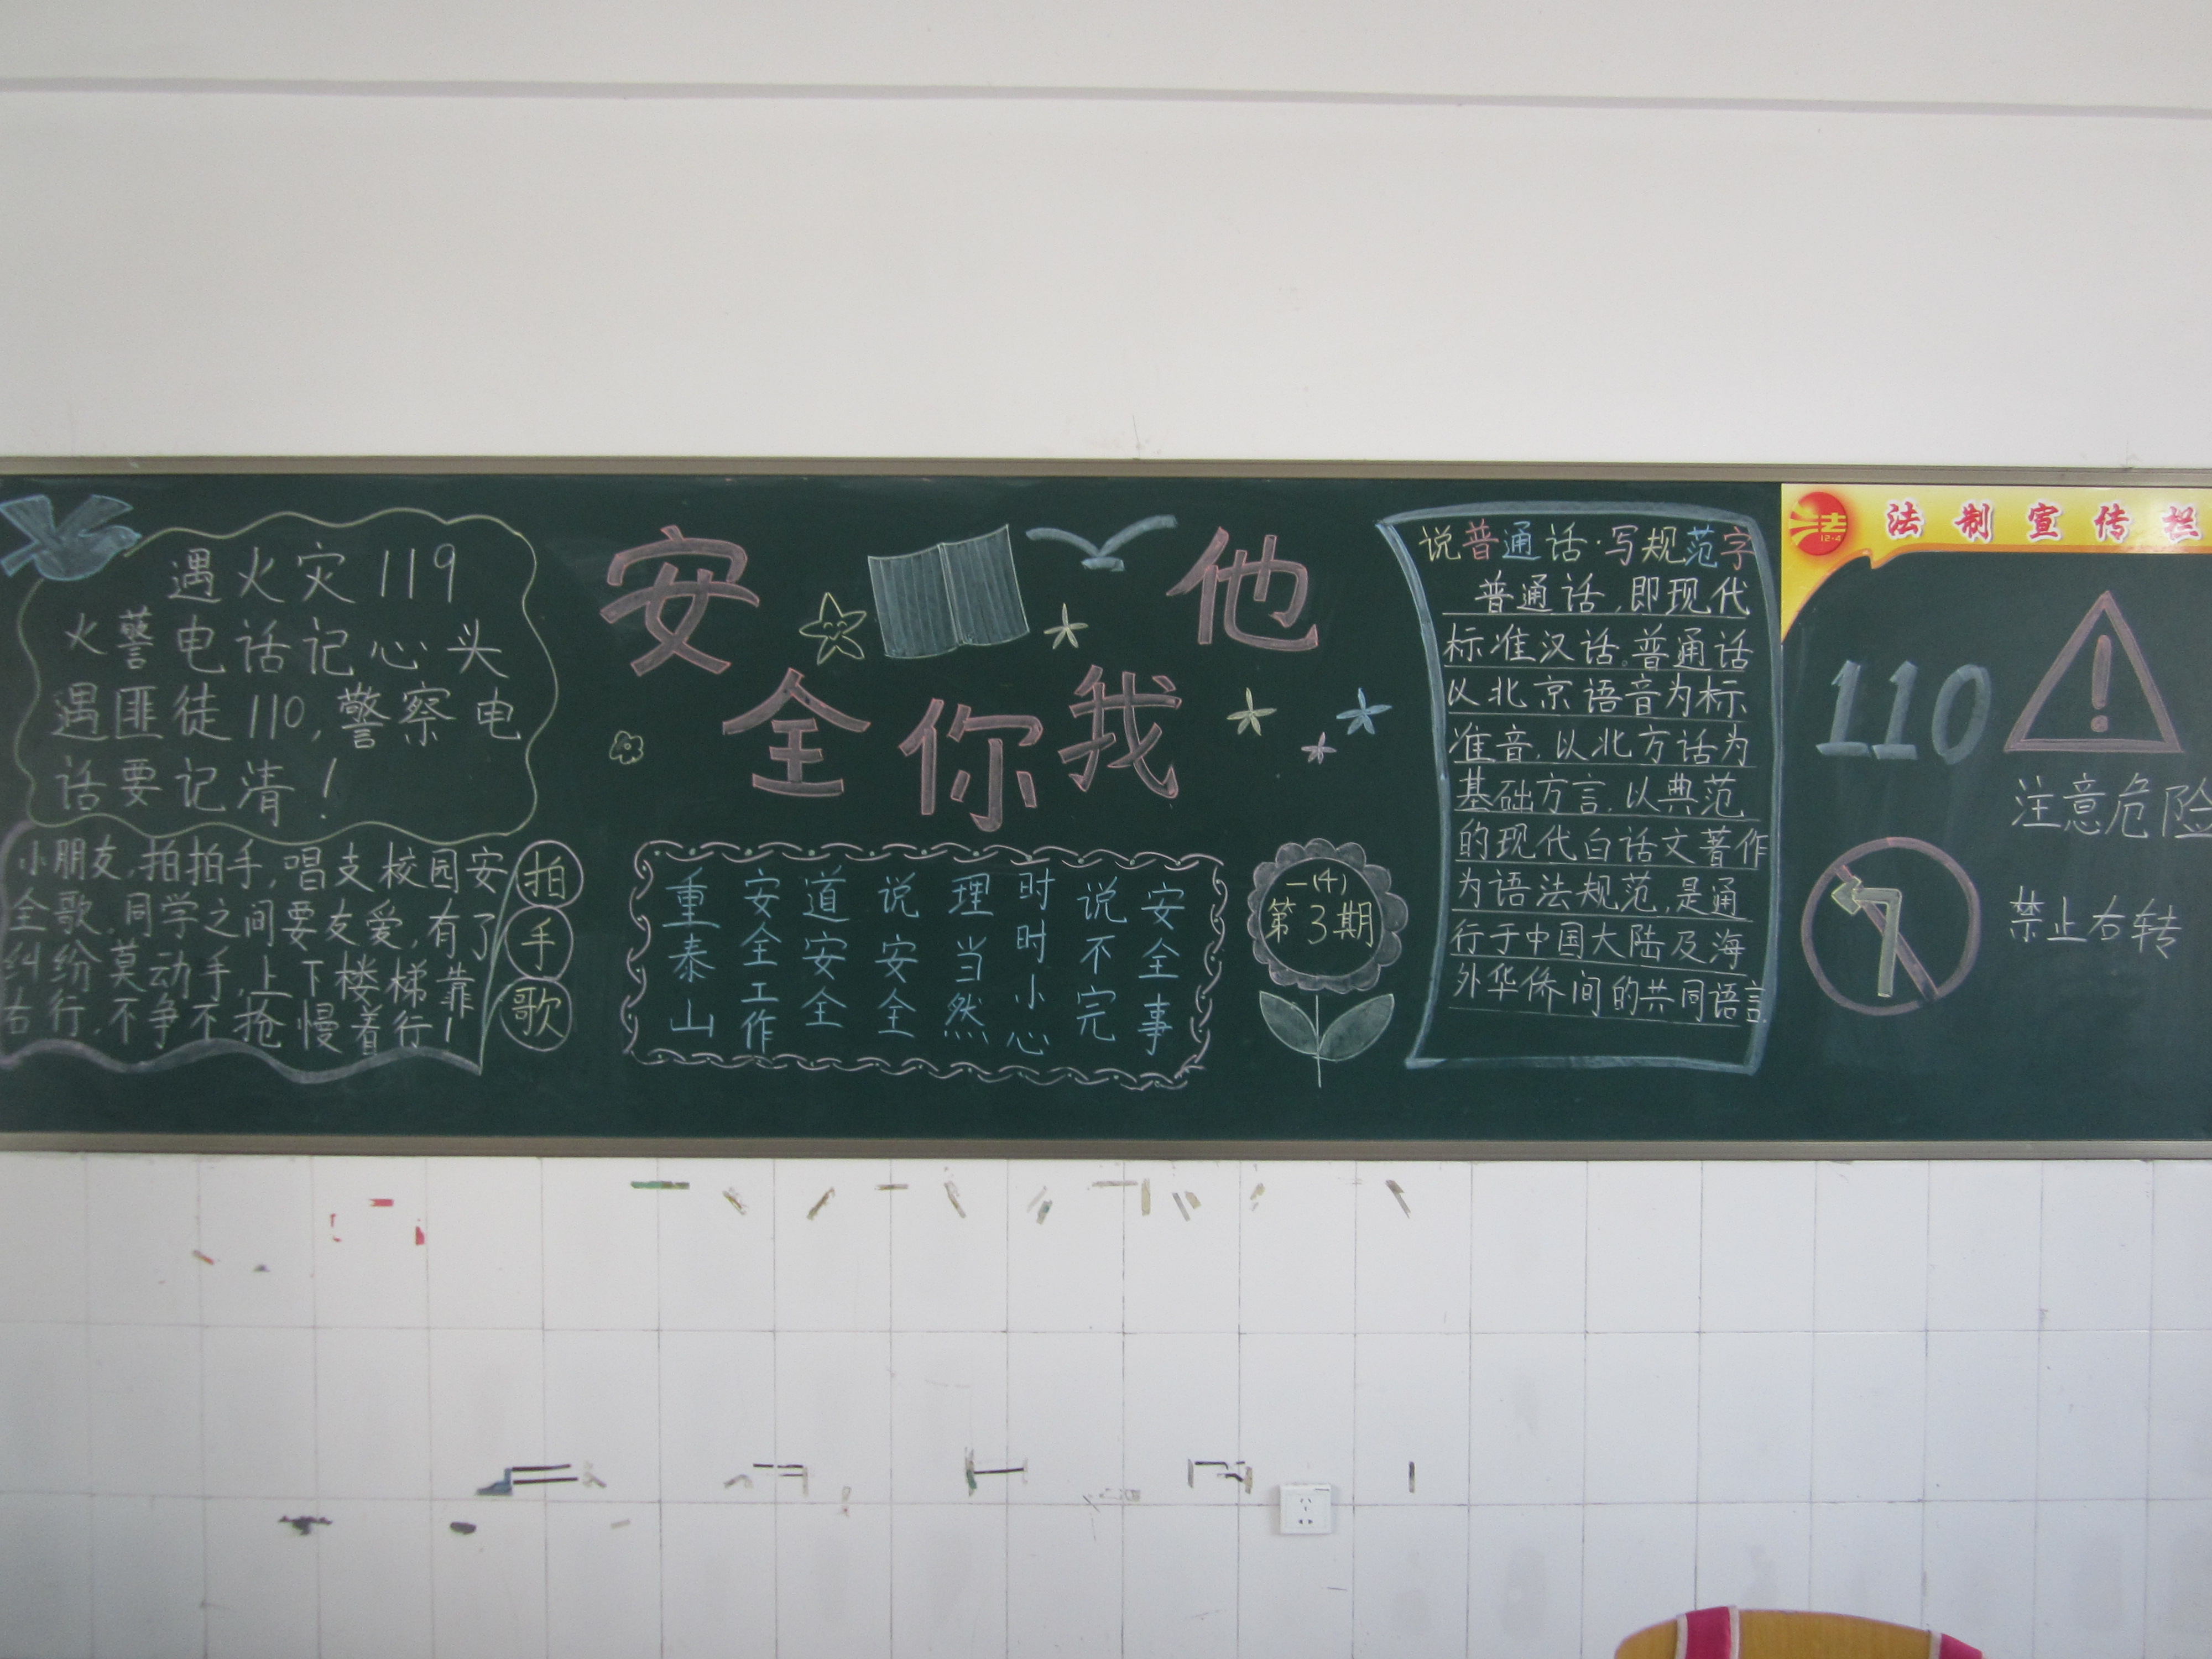 遇火灾119
火警电话记心头
遇匪徒110,警察电
话要记清!
小朋友,拍拍手,唱支校园安
全歌.同学之间要友爱,有了
纠纷莫动手,上下楼梯靠
右行.不争不抢慢着行!
拍
手
歌
安全你我他
安全事
说不完
时时小心
理当然
说安全
道安全
安全工作
重泰山
一(4)
第3期
说普通话·写规范字
普通话,即现代
标准汉话.普通话
以北京语音为标
准音.以北方话为
基础方言.以典范
的现代白话文著作
为语法规范,是通
行于中国大陆及海
外华侨间的共同语言.
法
12·4
法制宣传栏
110
!
注意危险
禁止右转